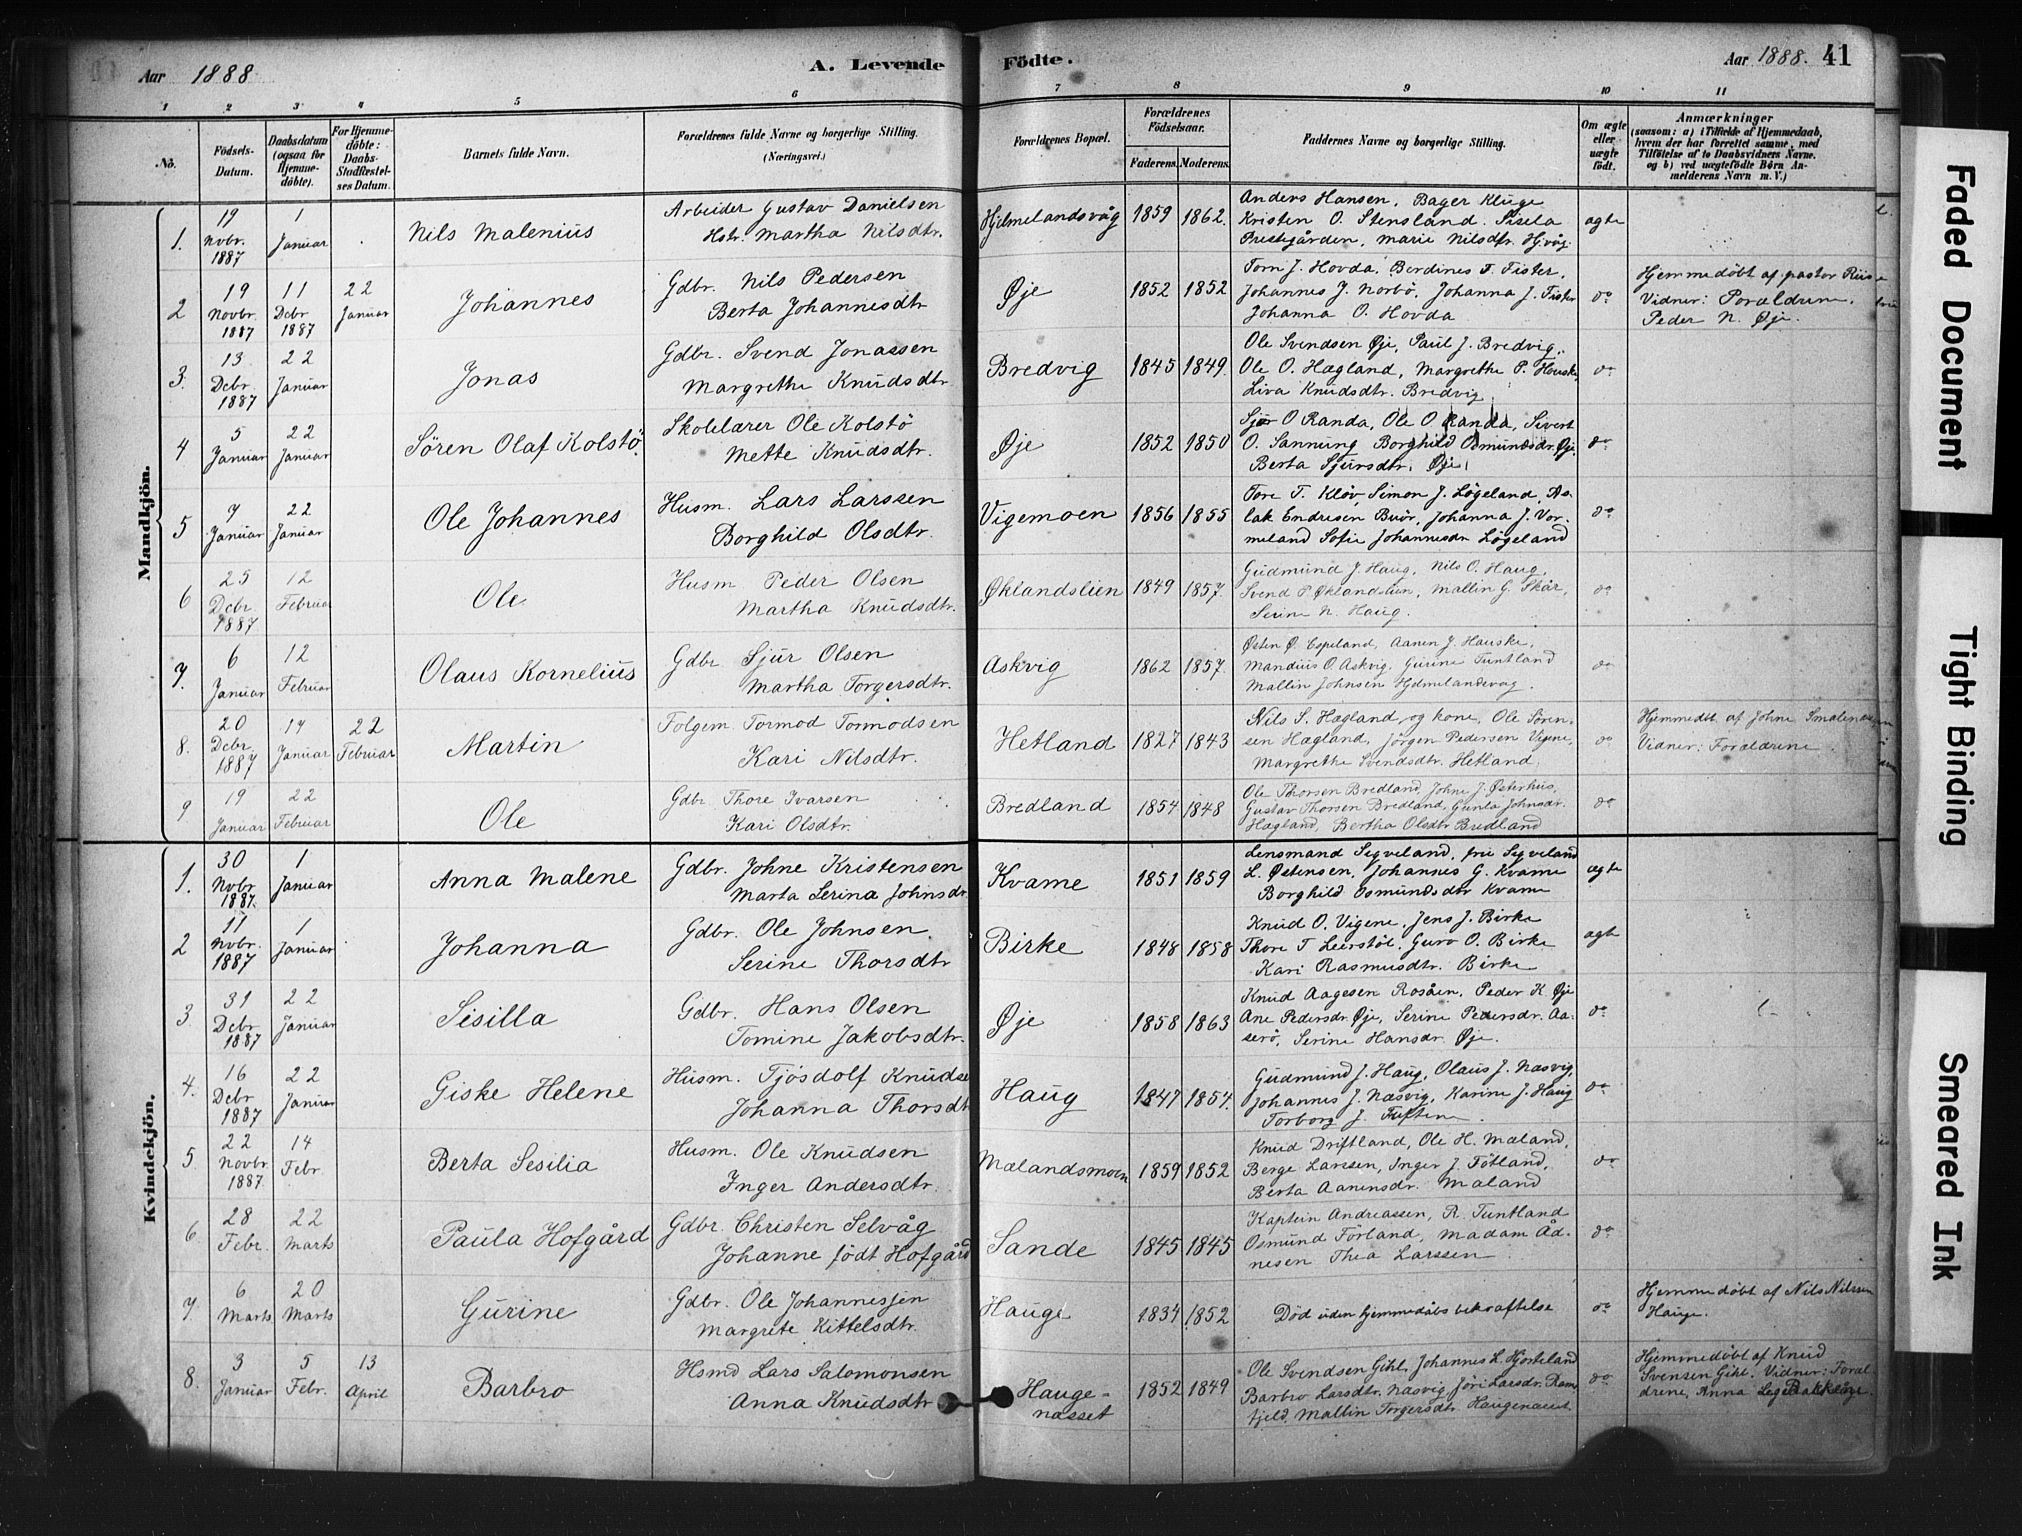 Aar 1888
A. Levende Födte.
Aar 1888. 41
1 2 3 4 5 6 7 8 9 10 11
No.
Födsels-Datum.
Daabsdatum (ogsaa for Hjemmedöbte).
For Hjemmedöbte: Daabs-Stadfæstelses Datum.
Barnets fulde Navn.
Forældrenes fulde Navne og borgerlige Stilling. (Næringsvei.)
Forældrenes Bopæl.
Forældrenes Födselsaar.
Faderens. Moderens.
Faddernes Navne og borgerlige Stilling.
Om ægte eller uægte födt.
Anmærkninger
(saasom: a) i Tilfælde af Hjemmedaab, hvem der har forrettet samme, med Tilföielse af to Daabsvidners Navne, og b) ved uægtefödte Börn Anmelderens Navn m. V.)
Mandkjön.
1. 19 Novbr. 1887 1 Januar Nils Malenius
Arbeider Gustav Danielsen
Hstr. Martha Nilsdtr.
Hjelmelandsvåg 1859 1862.
Anders Hansen, Bager Kluge
Kristen O. Stensland. Sisela
Prestegården, Marie Nilsdtr. Hj.våg.
ægte
2 19 Novbr. 1887 11 Debr 1887 22 Januar Johannes
Gdbr. Nils Pedersen
Berta Johannesdtr
Øje 1852 1852
Torn J. Hovda, Berdines T. Fister,
Johannes J. Norbö, Johanna J. Fister
Johanna O. Hovda
do
Hjemmedöbt af pastor Riis
Vidner: Forældrene.
Peder N. Øje.
3. 13 Debr. 1887 22 Januar Jonas
Gdbr. Svend Jonassen
Margrethe Knudsdtr
Bredvig 1845 1849.
Ole Svendsen Øje, Paul J. Bredvig,
Ole O. Hægland, Margrethe P. Hauske,
Liva Knudsdtr. Bredvig
do
4 5 Januar 22 Januar Sören Olaf Kolstö.
Skolelærer Ole Kolstö
Mette Knudsdtr.
Øje 1852 1850
Sjur O Randa, Ole O Randa, Sivert
O. Sannung Borghild Osmundsdr. Øje.
Berta Sjursdtr. Øje
do
5 7 Januar 22 Januar Ole Johannes
Husm. Lars Larssen
Borghild Olsdtr.
Vigemoen 1856 1855
Tore T. Kløv Simon J. Løgeland, As-
lak Endresen Buör, Johanna J. Vor-
meland Sofie Johannesdr Løgeland
do
6 25 Debr. 1887 12 Februar Ole
Husm Peder Olsen
Martha Knudsdtr.
Øklandslien 1849 1857.
Gudmund J. Haug, Nils O. Haug,
Svend P. Øklandslien, Mallin G. Skår,
Serine N. Haug.
do
7. 6 Januar 12 Februar Olaus Kornelius
Gdbr Sjur Olsen
Martha Torgersdtr.
Askvig 1862 1857.
Østen Ø. Espeland, Aanen J. Hauske,
Mandius O. Askvig, Gurine Tuntland
Mallin Johnsen Hjelmelandsvag.
do
8. 20 Debr 1887 14 Januar 22 Februar Martin
Folgem Tormod Tormodsen
Kari Nilsdtr.
Hetland 1827 1843
Nils S. Hægland og kone, Ole Sören-
sen Hægland, Jörgen Pedersen Vigene,
Margrethe Svendsdtr. Hetland.
do
Hjemmedbt. af Johne Smalenæs
Vidner: Forældrene.
9 19 Januar 22 Februar Ole
Gdbr Thore Ivarsen
Kari Olsdtr.
Bredland 1854 1848
Ole Thorsen Bredland, Johne J. Østerhus,
Gustav Thorsen Bredland, Gunla Johnsdr.
Hægland, Bertha Olsdtr Bredland
do
Kvindekjön.
1. 30 Novbr 1887. 1 Januar Anna Malene
Gdbr. Johne Kristensen
Marta Serina Johnsdr
Kvame 1851 1859
Lensmand Sigveland, fru Sigveland
L. Østensen, Johannes G. Kvame
Borghild Osmundsdtr Kvame
ægte
2 11 Novbr. 1887 1 Januar Johanna
Gdbr. Ole Johnsen
Serine Thorsdtr
Birke 1848 1858
Knud O. Vigene, Jens J. Birke
Thore T Leerstöl, Guro O. Birke
Kari Rasmusdtr. Birke
ægte
3 31 Debr 1887 22 Januar Sisilla
Gdbr. Hans Olsen
Tomine Jakobsdtr.
Øje 1858 1863
Knud Aagesen Rosåen, Peder K. Øje
Ane Pedersdr. Øje, Serine Pedersdr. Aa-
serö, Serine Hansdr. Øje.
do
4. 16 Debr 1887 22 Januar Giske Helene
Husm. Tjösdolf Knudse
Johanna Thorsdt
Haug 1847 1854.
Gudmund J. Haug, Olaus J. Næsvig,
Johannes J. Næsvig, Karine J. Haug
Torborg J. Tuften
do
5 22 Novbr 1887 14 Febr. Berta Sesilia
Husm. Ole Knudsen
Inger Andersdtr.
Mælandsmoen 1859 1852
Knud Driftland, Ole H. Mæland,
Berge Larssen, Inger J. Fötland,
Berta Aanensdr. Mæland
do
6. 28 Febr. 22 Marts Paula Hofgård
Gdbr. Christen Selvåg
Johanne født Hofgård
Sande 1845 1845
Kaptein Andreassen, R. Tuntland
Osmund Förland, Madam Åd-
nesen Thea Larssen
do
7 6 Marts 20 Marts Gurine
Gdbr. Ole Johannessen
Margrete Kittelsdtr.
Hauge 1834 1852
Död uden hjemmedåbs bekræftelse
do
Hjemmedöbt af Nils Nilssen
Hauge.
8. 3 Januar 5 Febr. 13 April Barbro
Hsmd Lars Salomonsen
Anna Knudsdtr
Hauge-
næsset
1852 1849
Ole Svendsen Gihl, Johannes L. Hjorteland
Barbro Larsdtr. Næsvig, Jöri Larsdr. Ram
fjeld, Mallin Torgersdtr Haugenæset
do
Hjemmedöbt af Knud
Svensen Gihl. Vidner: Foræl
drene, Anna
Faded Document
Tight Binding
Smeared Ink